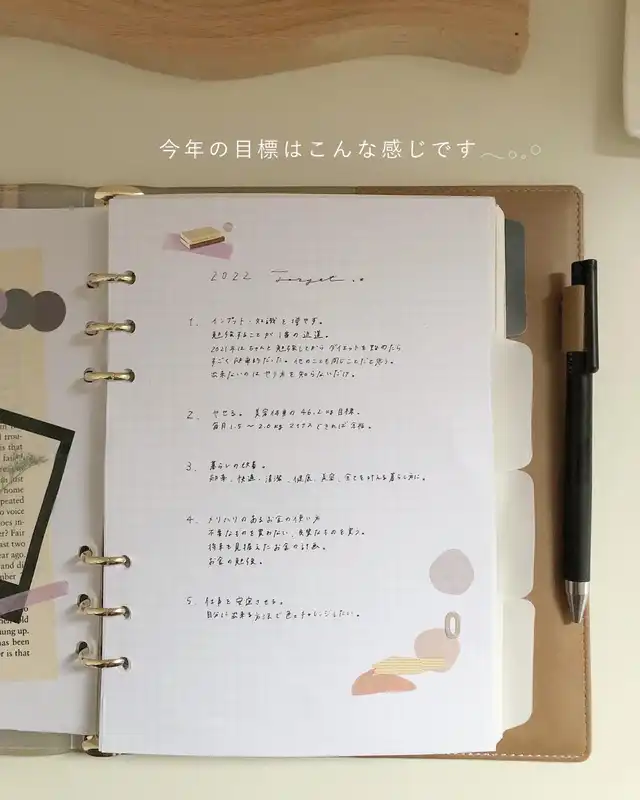 今年の目標はこんな感じです
2022 Target
1. インプット・知識を増やす。
勉強することが1番の近道。
2021年はちゃんと勉強してからダイエットを始めたら
すごく効率的だった。他のことも同じことだと思う。
出来ないのはやり方を知らないだけ。
2. やせる。美容体重の46.2kg目標。
毎月1.5〜2.0kgマイナスできれば合格。
3. 暮らしの改善。
効率、快適、清潔、健康、美容、全てを叶える暮らし方に。
4. メリハリのあるお金の使い方
不要なものを買わない、良質なものを買う。
将来を見据えたお金の計画。
お金の勉強。
5. 仕事を安定させる。
自分に出来る方法で色々チャレンジしたい。
is that
failed
home
peated
to voice
does in-
fer? Fair
last two
year ago.
and di
mber
old
hung up.
has been
er is that